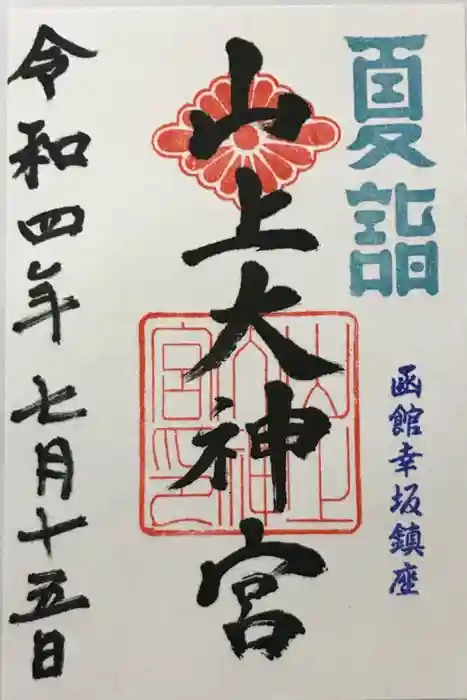 夏詣
函館幸坂鎮座
山上大神宮
令和四年七月十五日